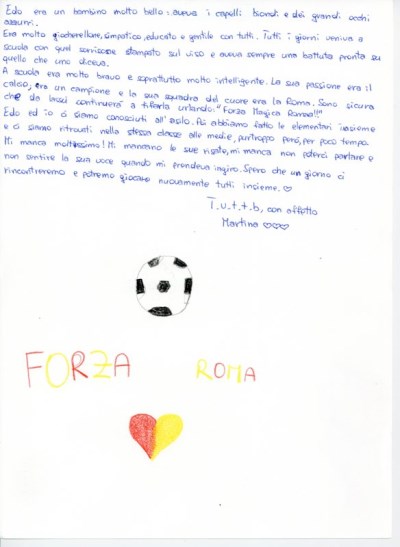 Edo era un bambino molto bello: aveva i capelli biondi e dei grandi occhi
azzurri.
Era molto giocherellone, simpatico, educato e gentile con tutti. Tutti i giorni veniva a
scuola con quel sorrisone stampato sul viso e aveva sempre una battuta pronta su
quello che uno diceva.
A scuola era molto bravo e soprattutto molto intelligente. La sua passione era il
calcio, era un campione e la sua squadra del cuore era la Roma. Sono sicura
che da lassù continuerà a tifarla urlando: "Forza Magica Roma!!"
Edo ed io ci siamo conosciuti all'asilo. Poi abbiamo fatto le elementari insieme
e ci siamo ritrovati nella stessa classe alle medie, purtroppo però, per poco tempo.
Mi manca moltissimo! Mi mancano le sue risate, mi manca non poterci parlare e
non sentire la sua voce quando mi prendeva in giro. Spero che un giorno ci
rincontreremo e potremo giocare nuovamente tutti insieme. ♡
T.u.t.t.b, con affetto
Martina ♡♡♡
FORZA ROMA